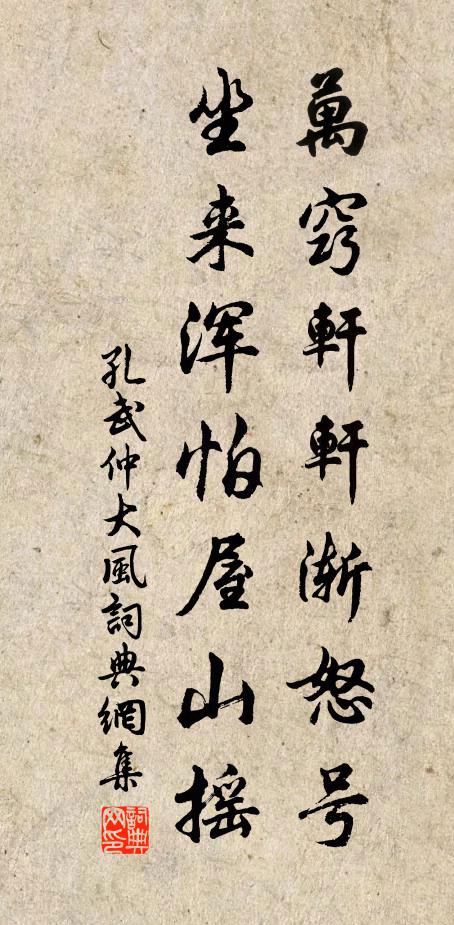 萬窍軒軒渐怒号
坐来浑怕屋山摇
孔武仲大風詞典網集
詞典
网印